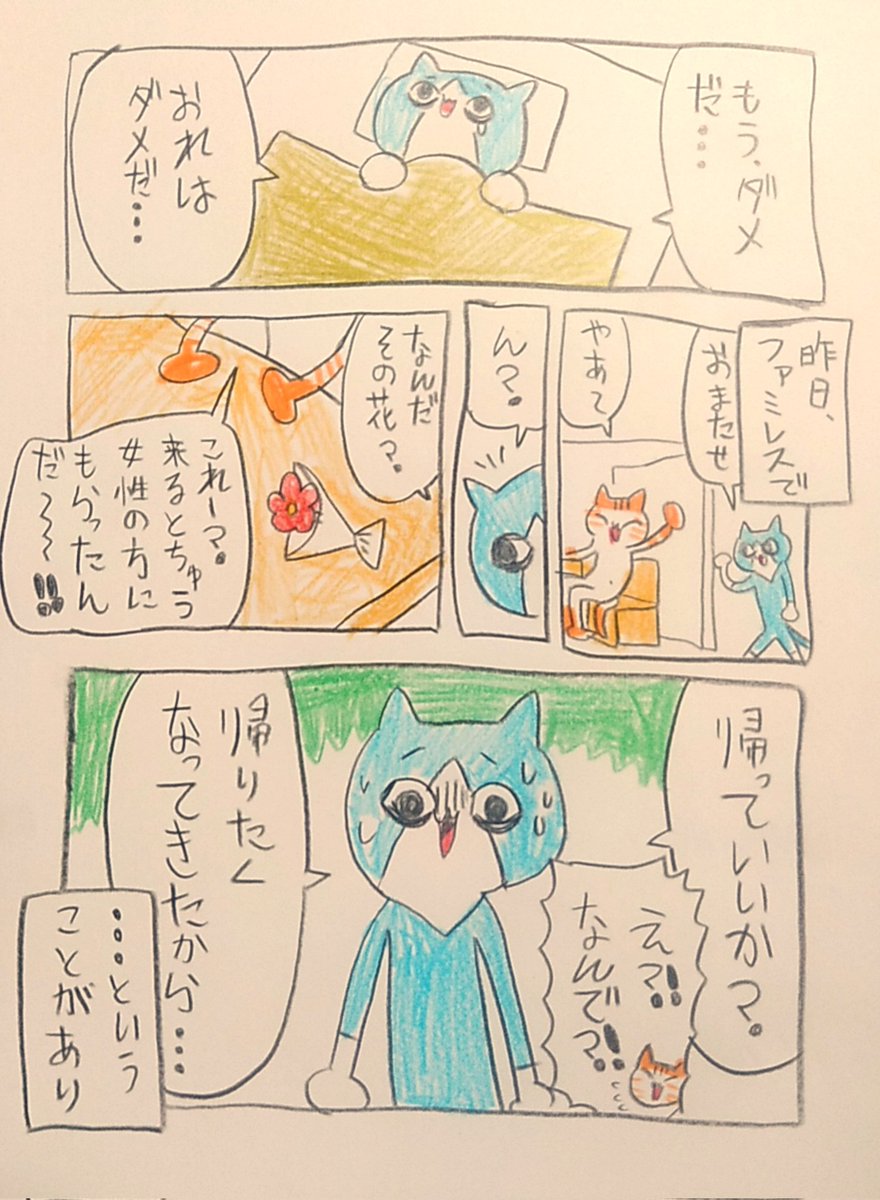 もう、ダメ
だ…
おれは
ダメだ…
昨日、
ファミレスで
おまたせ
やあて
ん?
なんだ
その花?
これー?
来るとちゅう
女性の方に
もらったん
だ〜〜!!
帰っていいか?
え?!
なんで?!
帰りたく
なってきたから…
…という
ことがあり